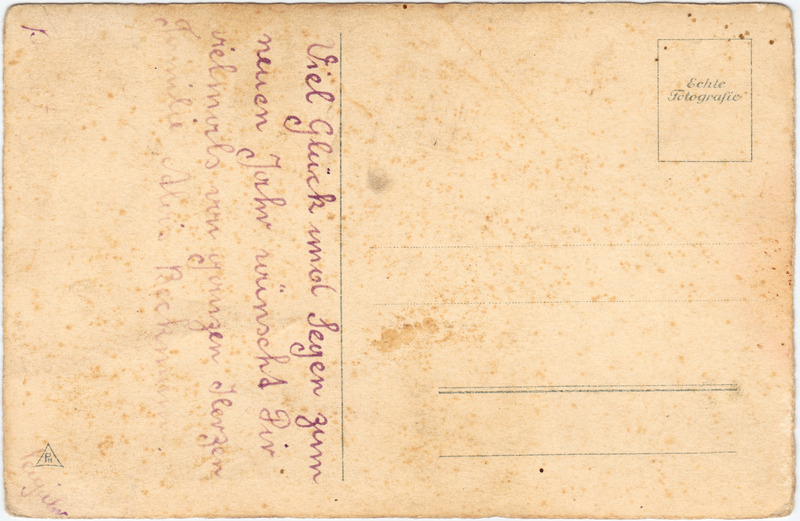 Viel Glück und Segen zum
neuen Jahr wünscht Dir
vielmals von ganzen Herzen
Familie
Echte
Fotografie
PH